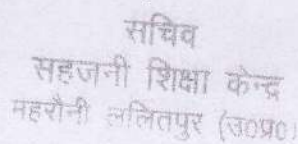 सचिव
सहजनी शिक्षा केन्द्र
महरौनी ललितपुर (उ०प्र०)